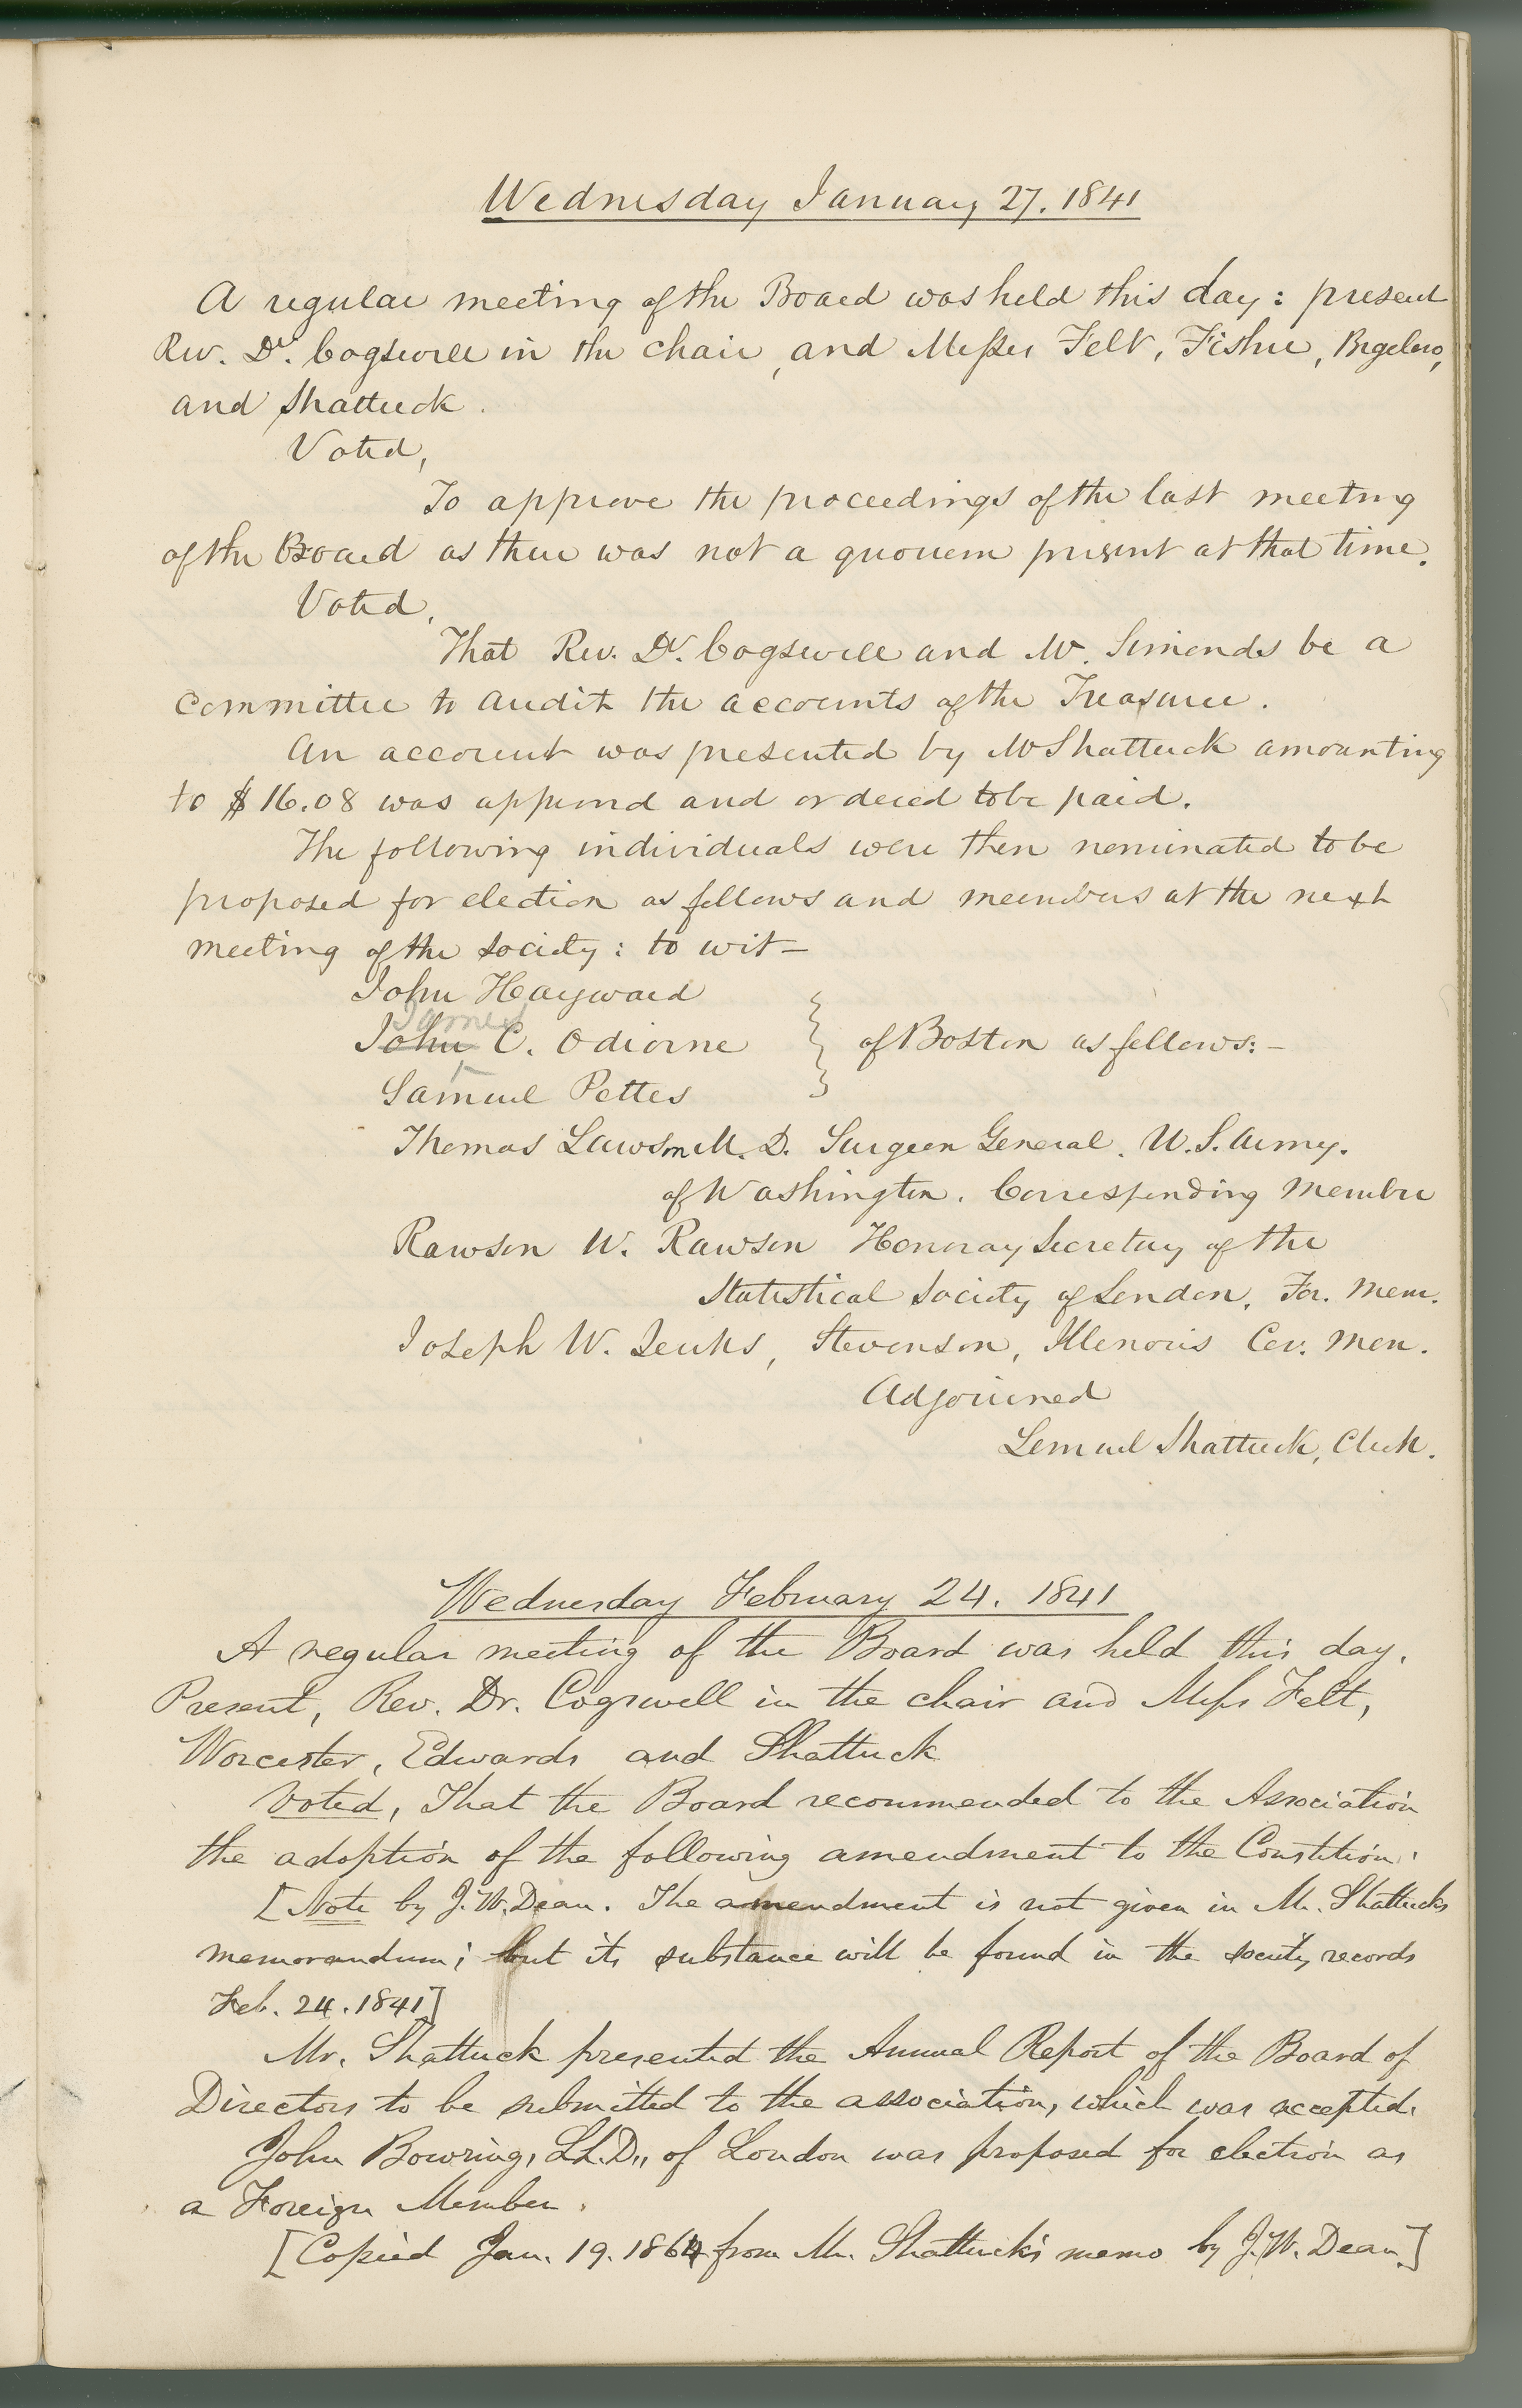 Wednesday January 27. 1841
A regular meeting of the Board was held this day: present
Rev. Dr. Cogswell in the chair, and Messrs Felt, Fisher, Bigelow,
and Shattuck.
Voted,
To approve the proceedings of the last meeting
of the Board as there was not a quorum present at that time.
Voted,
That Rev. Dr. Cogswell and Mr. Simonds be a
Committee to audit the accounts of the Treasurer.
An account was presented by Mr Shattuck amounting
to $16.08 was approved and ordered to be paid.
The following individuals were then nominated to be
proposed for election as fellows and members at the next
meeting of the society: to wit—
John Hayward
James
John C. Odiorne } of Boston as fellows:—
Samuel Pettes
Thomas Lawson M. D. Surgeon General. U. S. Army.
of Washington. Corresponding Member
Rawson W. Rawson Honoray Secretary of the
Statistical Society of London. For. Mem.
Joseph W. Jenks, Stevenson, Illenois Cor. Mem.
Adjourned
Lemuel Shattuck, Clerk.
Wednesday February 24. 1841
A regular meeting of the Board was held this day.
Present, Rev. Dr. Cogswell in the chair and Messrs Felt,
Worcester, Edwards and Shattuck
Voted, That the Board recommended to the Association
the adoption of the following amendment to the Constition.
[Note by J. W. Dean. The amendment is not given in Mr. Shattucks
memorandum; but its substance will be found in the society records
Feb. 24. 1841]
Mr. Shattuck presented the Annual Report of the Board of
Directors to be submitted to the association, which was accepted.
John Bowring, LL.D., of London was proposed for election as
a Foreign Member.
[Copied Jan. 19. 1864 from Mr. Shattuck's memo by J. W. Dean.]